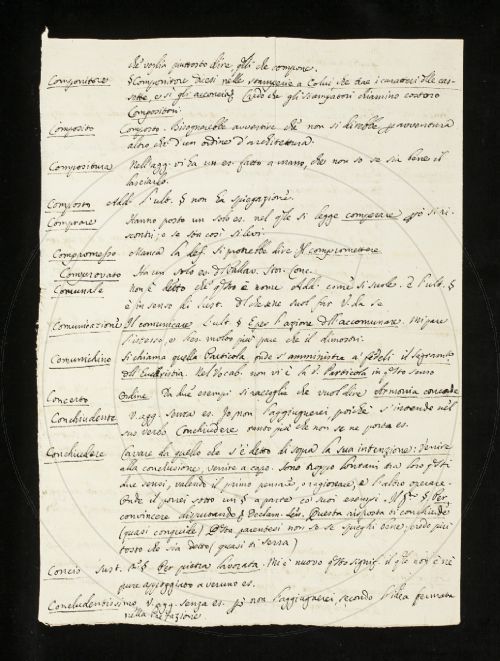 che voglia piuttosto dire che compone.
Componitore § Componitore dicesi nelle stamperie a Colui che dae i caratteri dlle cas-
sette, e si gli acconcia. Credo che gli stampatori chiamino costoro
Compositori
Composito Composto. Bisognarebbe avvertire che non si direbbe p avventura
altro che d'un ordine d'architettura.
Compositura Nell'agg. vi ha un es. fatto a mano, che non so se sia bene il
lasciarlo.
Composto Add. l'ult. § non ha spiegazione.
Comprare Hanno posto un solo es. nel qle si legge comperare si ri-
scontri, e se sta così si levi
Compromesso Manca la def. si potrebbe dire Il compromettere
Comprovato Ha un solo es. Pallav. Stor. Conc.
Comunale non è detto che qsto è nome Add. come si suole. E l'ult. §
è in senso di Sust. V. da se
Comunicazione Il comunicare. l'ult. § E per l'azione dll'accomunare. Mi pare
l'istesso, e ses. molto più pare che il dimostri.
Comunichino Si chiama qlla Particola onde s'amministra a' fedeli il Sagramto
dll'Eucaristia. Nel Vocab. non vi è la V. Particola in qsto senso
Concerto Ordine. Da due esempi si raccoglie che vuol dire Armonia concorde
Conchiudente V. agg. senza es. Io non l'aggiugnerei, poichè s'intende nel
suo verbo Conchiudere tanto più che non se ne porta es.
Conchiudere Cavare da quello che s'è detto di sopra la sua intenzione: Venire
alla conclusione, venire a capo. Sono troppo lontani tra loro qsti
due sensi, valendo il primo pensare, o ragionare, e l'altro operare.
Onde il porrei sotto un § a parte co' suoi esempi. Il §. Per
convincere disputando § Declam. Questa risposta si conchiude
(quasi conquide) Qsta parentesi non so se spieghi bene, credo più
tosto che sia detto (quasi si serra)
Concio Sust. § Per pietra lavorata. Mi è nuovo qsto signif. il qle non è nè
pure appoggiato a veruno es.
Concludentissimo V. agg. senza es. non l'aggiugnerei, secondo l'idea fermata
nella Prefazione.